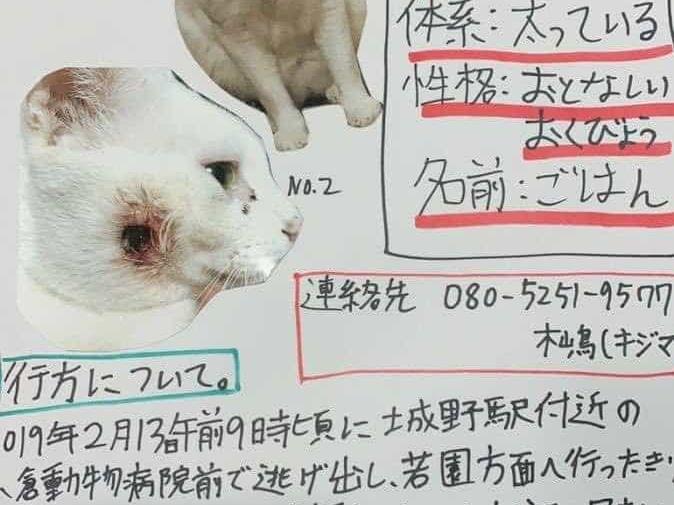 体系:太っている
性格:おとなしい
おくびょう
名前:ごはん
NO.2
連絡先 080-5251-9577
杣嶋(キジマ
行方について。
019年2月13日午前9時頃に 城野駅付近の
倉動物病院前で逃げ出し、若園方面へ行ったきり